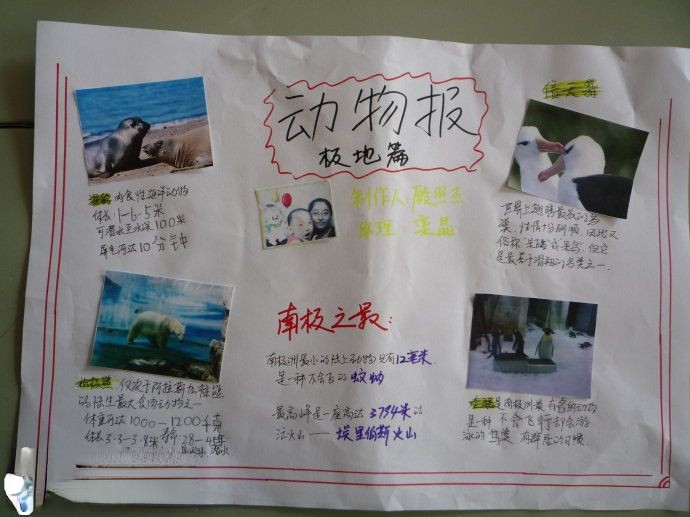 动物报
极地篇
制作人:殷熙杰
助理:栾晶
海豹 肉食性海洋动物
体长1-6.5米
可潜水至水深100米
屏气可达10分钟
信天翁
世界上翅膀最长的鸟
类,性情特别驯顺,因此又
俗称"呆鸥"或"呆鸟"但它
是最善于滑翔的鸟类之一
南极之最:
南极洲最小的陆上动物只有12毫米,
是一种不会飞的蚊蚋
最高峰是一座高达3794米的
活火山——埃里伯斯火山
北极熊:仅次于阿拉斯加棕熊
的陆生最大食肉动物之一
体重可达1000—1200千克
体长3.3-3.8米
企鹅是南极洲最有名的动物
是一种不会飞行却会游
泳的鸟类 有群居的习惯.